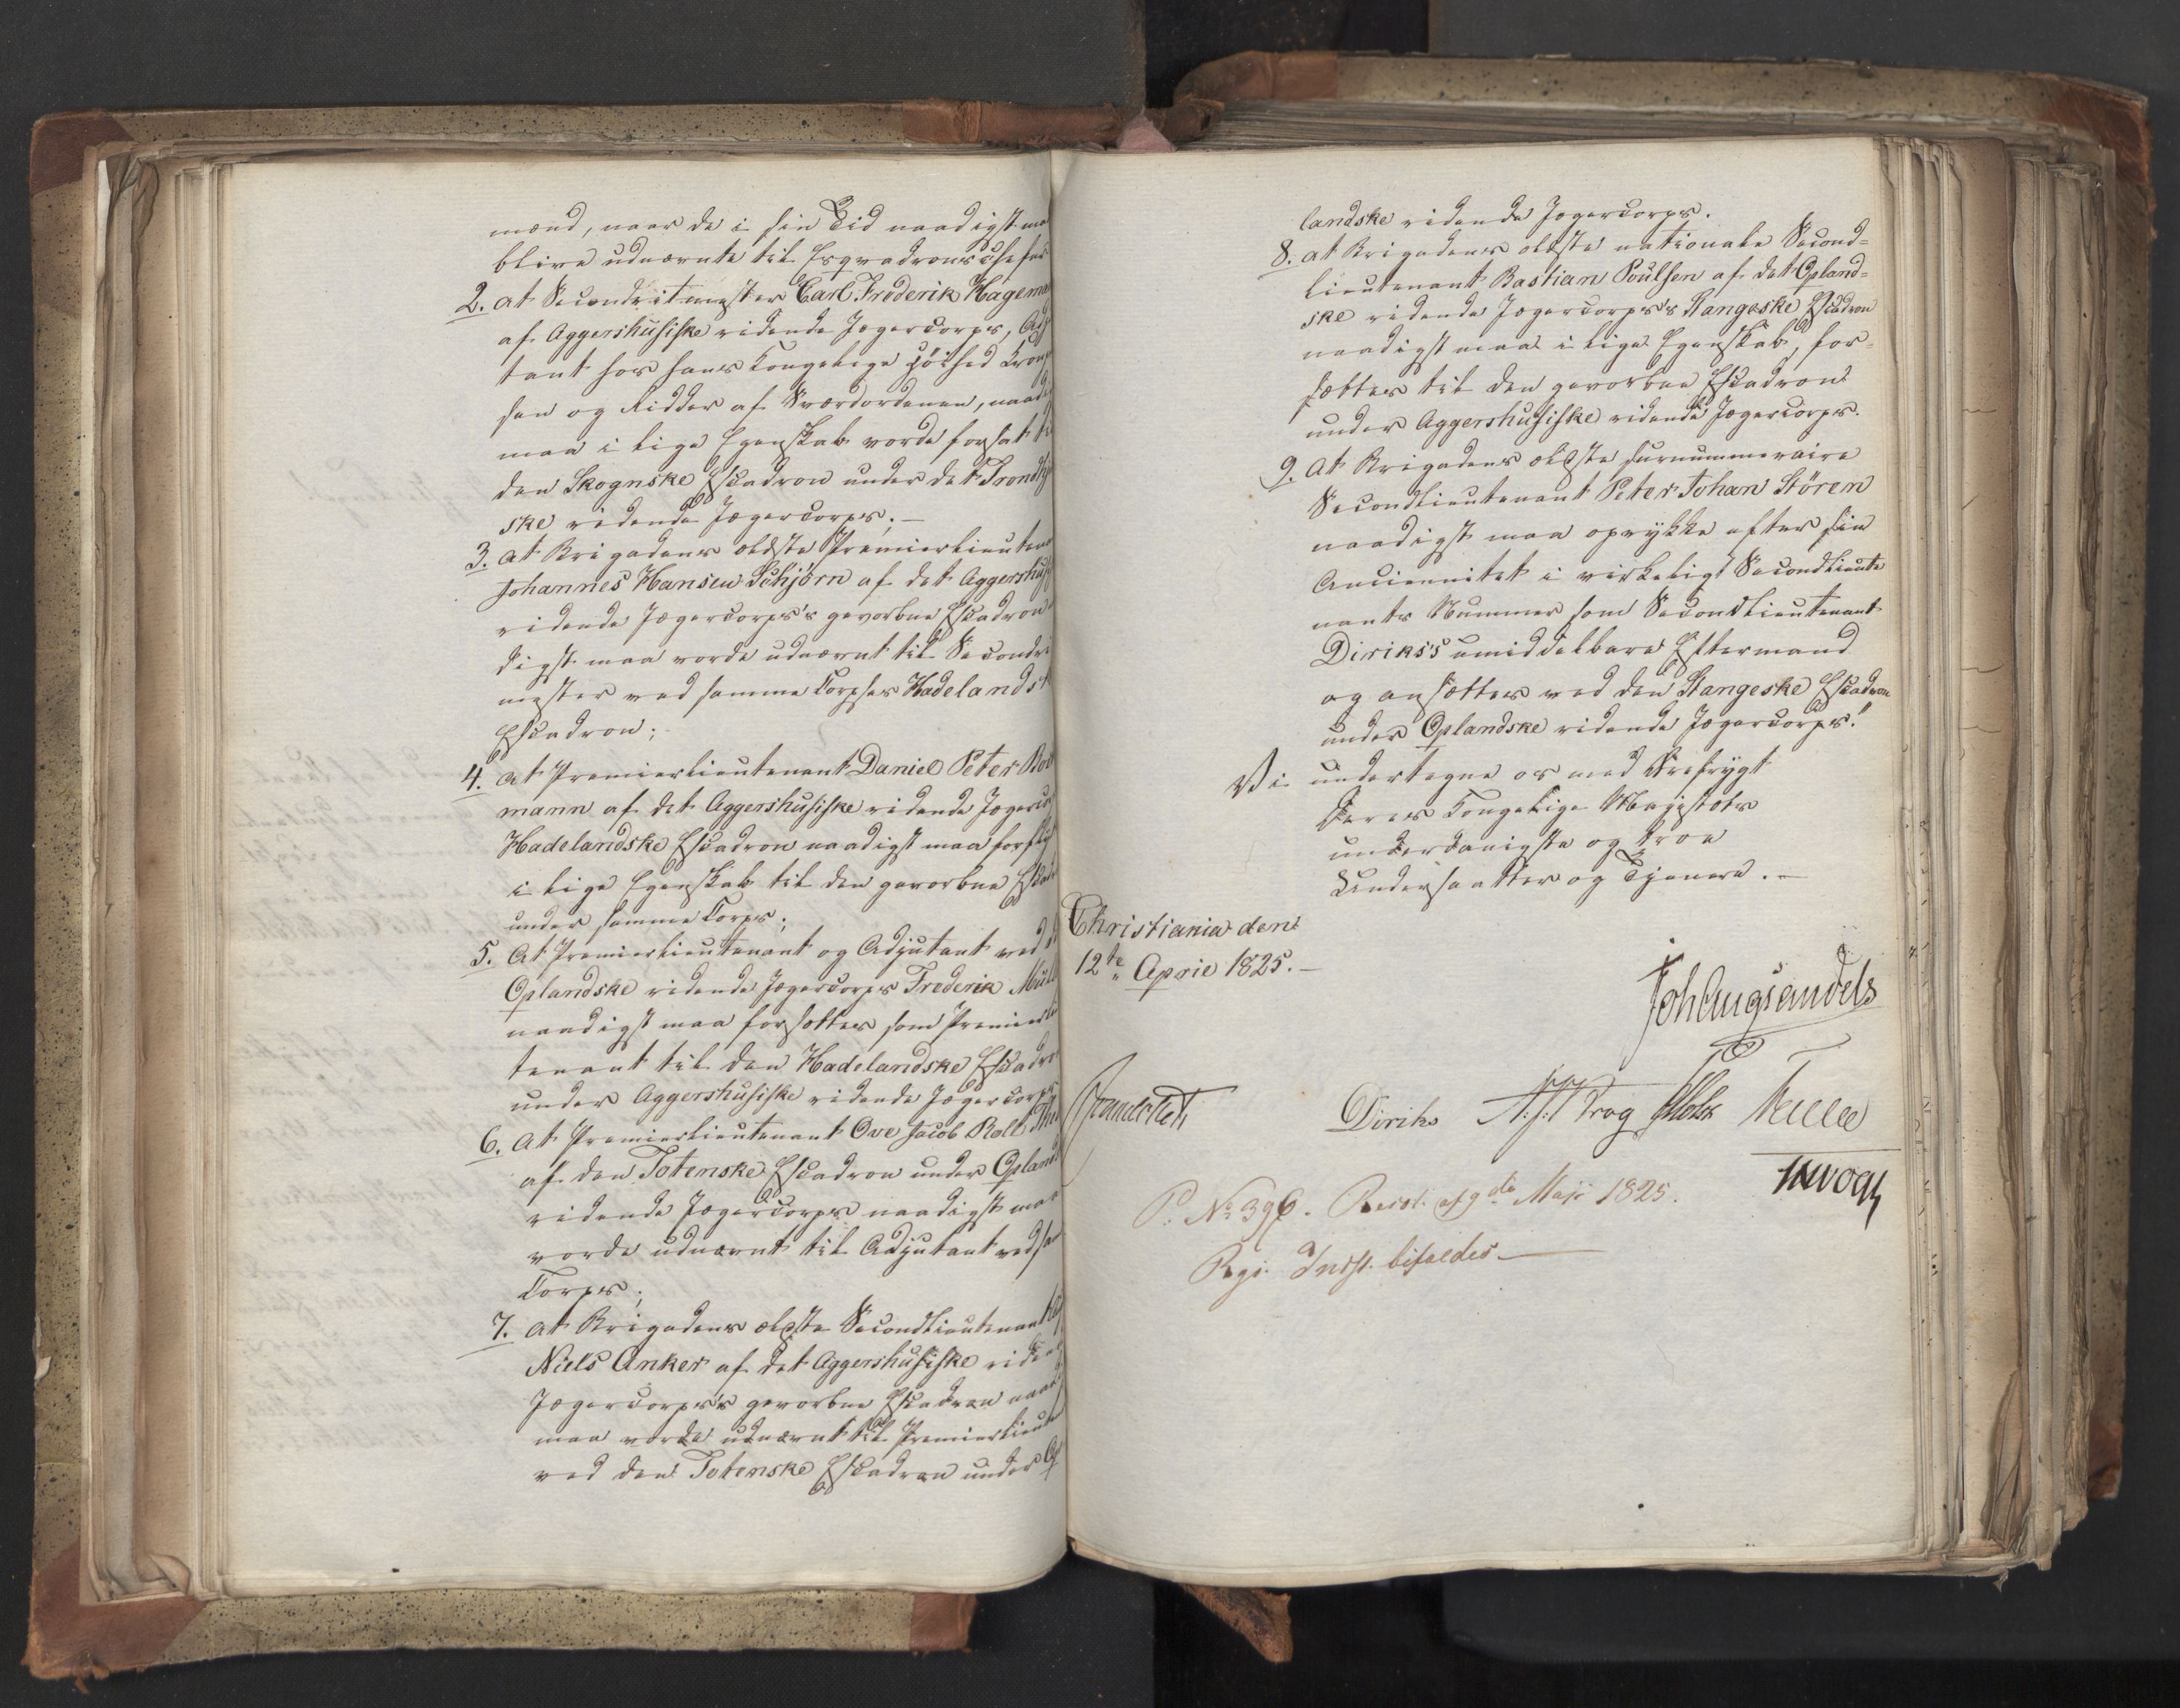 mænd, naar de i sin Tid naadigst maa
blive udnævnte til Esqvadronschefer
2. at Secondritmester Carl Frederik Hagema
af Aggershusiske ridende Jægercorps, Adj
tant hos hans Kongelige Höihed Kronp
sen og Ridder af Sværdordenen, naadi
maa i lige Egenskab vorde forsat til
den Skognske Escadron under det Trondhj
ske ridende Jægercorps; —
3. at Brigadens ældste Premierlieutena
Johannes Hansen Schjörn af det Aggershus
ridende Jægercorps's gevorbne Escadron
digst maa vorde udnævnt til Secondri
mester ved samme Corpses Hadelandsk
Escadron;
4. at Premierlieutenant Daniel Peter
mann af det Aggershusiske ridende Jægerco
Hadelandske Escadron naadigst maa forfly
i lige Egenskab til den gevorbne Escad
under samme Corps;
5. At Premierlieutenant og Adjutant ved
Oplandske ridende Jægercorps Frederik Mül
naadigst maa forsættes som Premierli
tenant til den Hadelandske Escadro
under Aggershusiske ridende Jægercorps
6. At Premierlieutenant Ove Jacob Roll
af den Totenske Escadron under Opland
ridende Jægercorps naadigst maa
vorde udnævnt til Adjutant ved sa
Corps;
7. at Brigadens ældste Secondlieutenant
Niels Anker af det Aggershusiske riden
Jægercorps's gevorbne Escadron naad
maa vorde udnævnt til Premierlieute
ved den Totenske Escadron under Op
landske ridende Jægercorps.
8. at Brigadens ældste nationale Second=
lieutenant Bastian Poulsen af det Opland=
ske ridende Jægercorps's Stangeske Escadron
naadigst maa i lige Egenskab, for=
sættes til den gevorbne Escadron
under Aggershusiske ridende Jægercorps.
9. At Brigadens ældste surnummeraire
Secondlieutenant Peter Johan Stören
naadigst maa oprykke efter sin
Anciennitet i virkeligt Secondlieute
nants Nummer som Secondlieutenant
Diriks's umiddelbare Eftermand
og ansættes ved den Stangeske Escadron
under Oplandske ridende Jægercorps."
Vi undertegne os med Ærefrygt
Deres Kongelige Majestæts
underdanigste og troe
Undersaatter og Tjenere. —
Christiania den
12te April 1825. —
Joh Aug Sandels
Diriks Krog Holst
P. No 396. Resol. af 9de Maji 1825.
Regj. Indst. bifaldes —